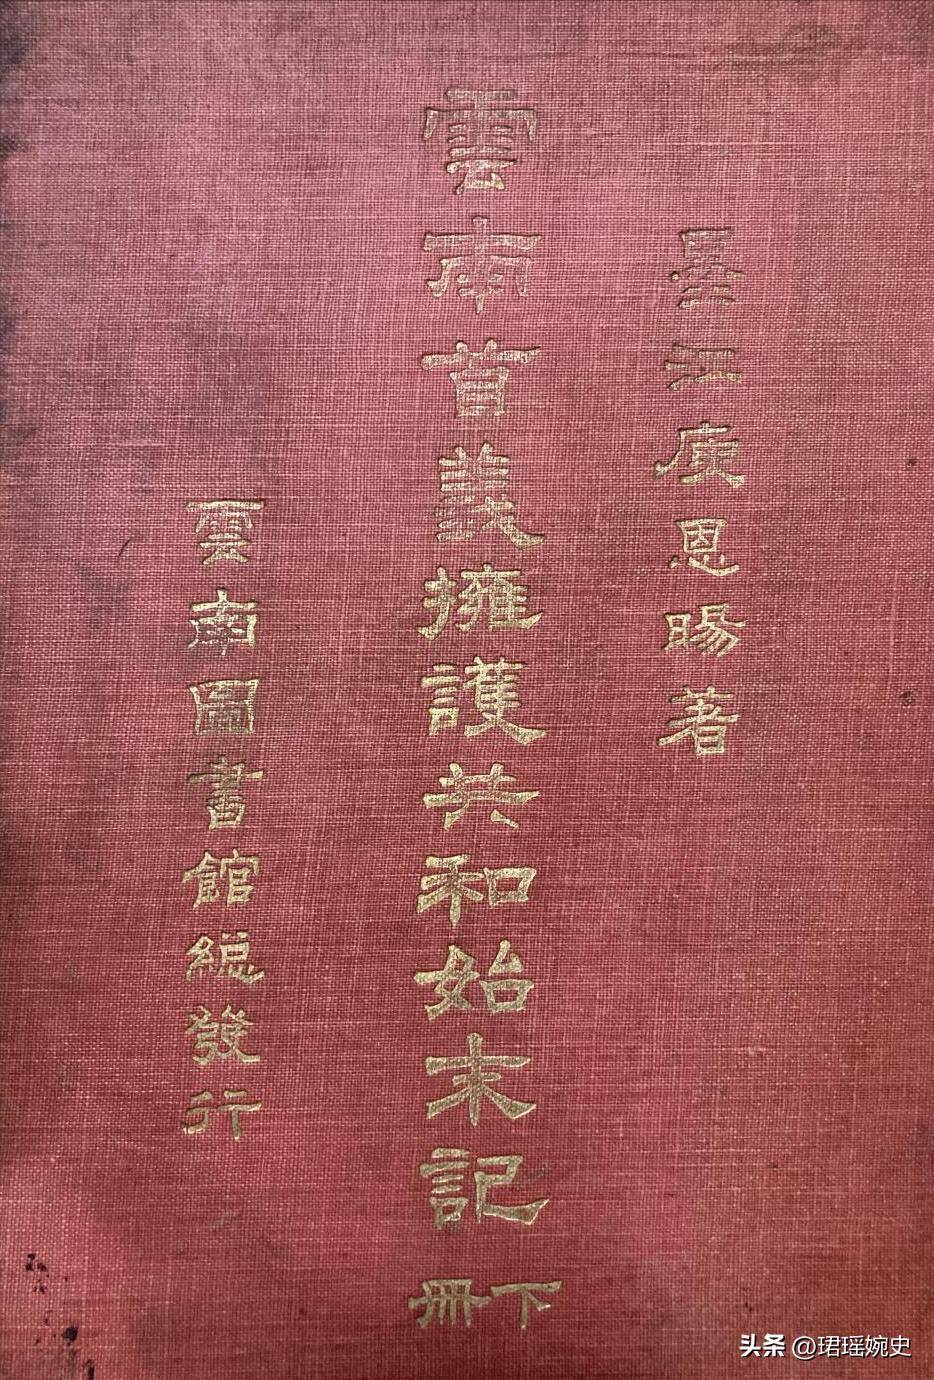 墨江庾恩暘著
雲南首義擁護共和始末記
下冊
雲南圖書館總發行
头条 @珺瑶婉史